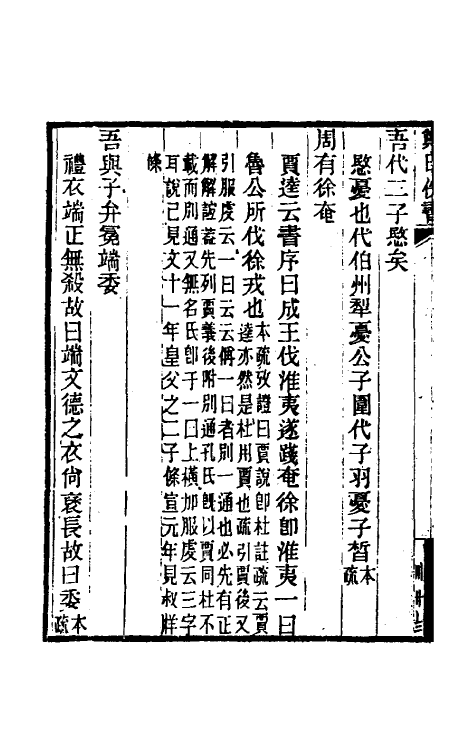 吾代二子愍矣
愍憂也代伯州犁憂公子圍代子羽憂子晳本疏
周有徐奄
賈逵云書序曰成王伐淮夷遂踐奄徐卽淮夷一曰
魯公所伐徐戎也本疏攷證曰賈說卽杜註疏云賈
逵亦然是杜用賈也疏引賈後又
引服虔云一曰云云傳一曰者別一通也必先有正
解解訖蓋先列賈義後附別通孔氏旣以賈同杜不
載而別通又無名氏卽于一曰上橫加服虔云三字
耳說已見文十一年皇父之二子條宣元年見叔牂
條
吾與子弁冕端委
禮衣端正無殺故曰端文德之衣尙襃長故曰委本疏